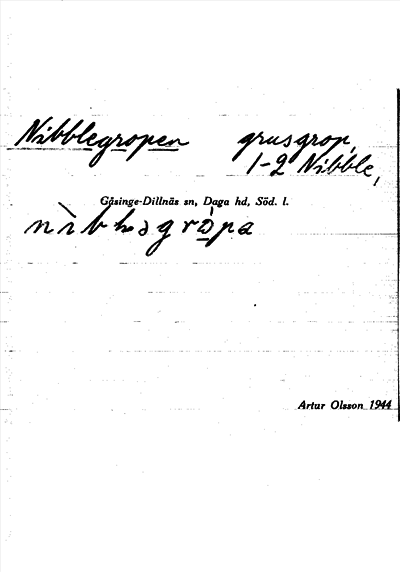 Nibblegropen grusgrop,
1-2 Nibble,
Gåsinge-Dillnäs sn, Daga hd, Söd. l.
Artur Olsson 1944